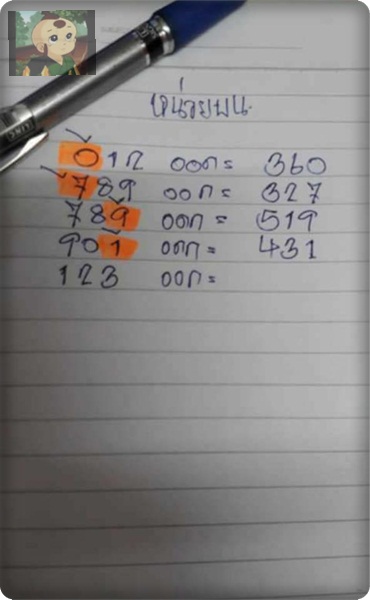 หน่วยบน
012 ออก = 360
789 ออก = 327
789 ออก = 519
901 ออก = 431
123 ออก =